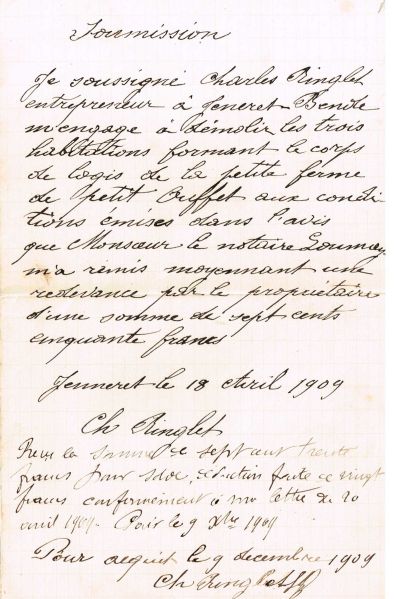 Soumission
Je soussigné Charles Ringlet
entrepreneur à Jeneret Bende
m'engage à démolir les trois
habitations formant le corps
de logis de la petite ferme
de petit Buffet aux condi
tions émises dans l'avis
que Monsieur le notaire
m'a remis moyennant une
redevance par le propriétaire
d'une somme de sept cents
cinquante francs
Jenneret le 18 Avril 1909
Ch Ringlet
Reçu la somme de sept cent trente
francs pour solde, déduction faite de vingt
francs conformément à ma lettre de 20
avril 1909. Paris le 9 Xbre 1909
Pour acquit le 9 decembre 1909
Ch Ringlet